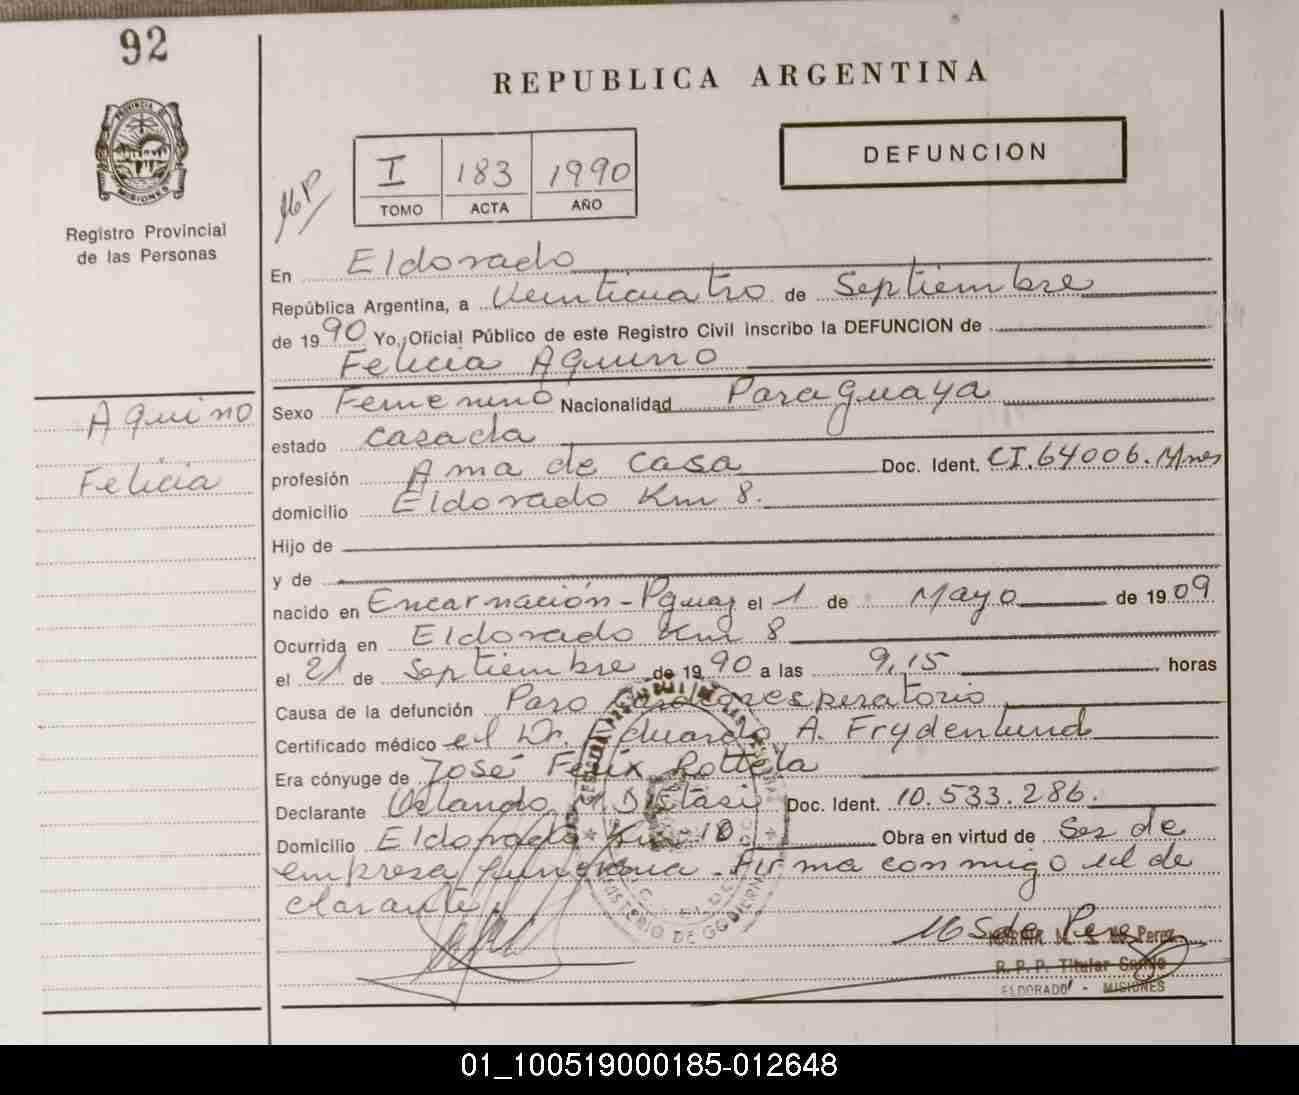 92
REPUBLICA ARGENTINA
PROVINCIA DE MISIONES
Registro Provincial
de las Personas
I 183 1990
TOMO ACTA AÑO
DEFUNCION
En Eldorado
República Argentina, a Veinticuatro de Septiembre
de 1990 Yo, Oficial Público de este Registro Civil inscribo la DEFUNCION de
Felicia Aquino
Aquino
Felicia
Sexo Femenino Nacionalidad Paraguaya
estado casada
profesión Ama de casa Doc. Ident. CI.64006.Mnes
domicilio Eldorado Km 8.
Hijo de
y de
nacido en Encarnación-Pguay el 1 de Mayo de 1909
Ocurrida en Eldorado Km 8
el 21 de Septiembre de 1990 a las 9,15 horas
Causa de la defunción Paro Cardiorespiratorio
Certificado médico el Dr. Eduardo A. Frydenlund
Era cónyuge de José Felix Rottela
Declarante Orlando Doc. Ident. 10.533.286.
Domicilio Eldorado Km 10 Obra en virtud de Ser de
empresa funebre. Firma conmigo el de
clarante.
MINISTERIO DE GOBIERNO
MS de Perez
M. S. de Perez
R. P. P. Titular
ELDORADO - MISIONES
01_100519000185-012648